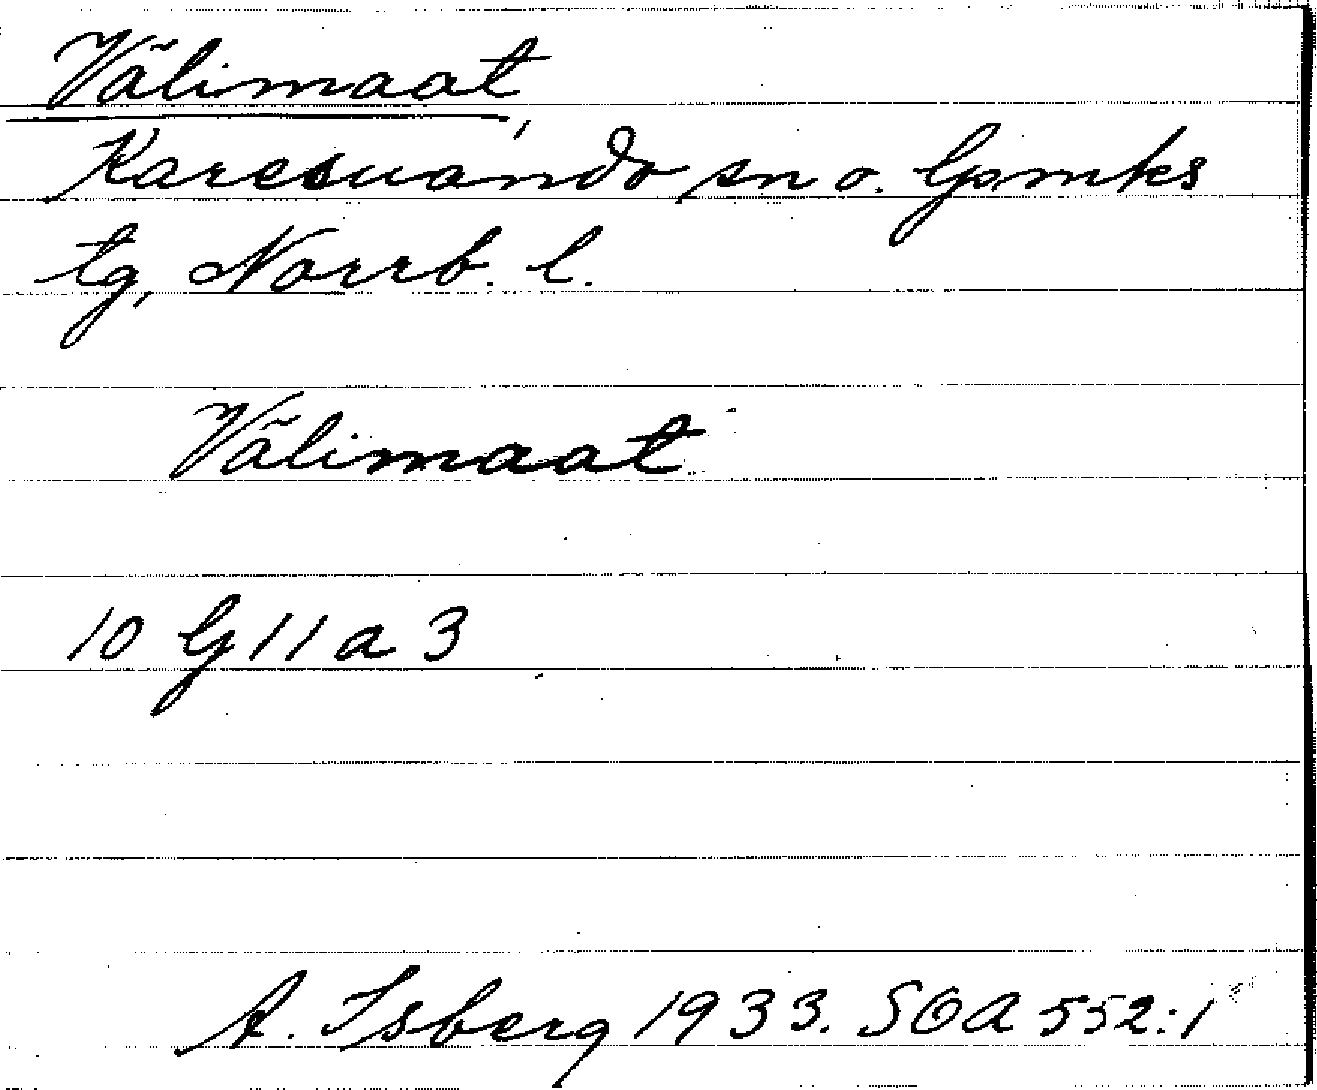 Välimaat,
Karesuando sn o. lpmks
tg, Norrb. l.
Välimaat
10 G 11 a 3
A. Isberg 1933. SOA 552:1